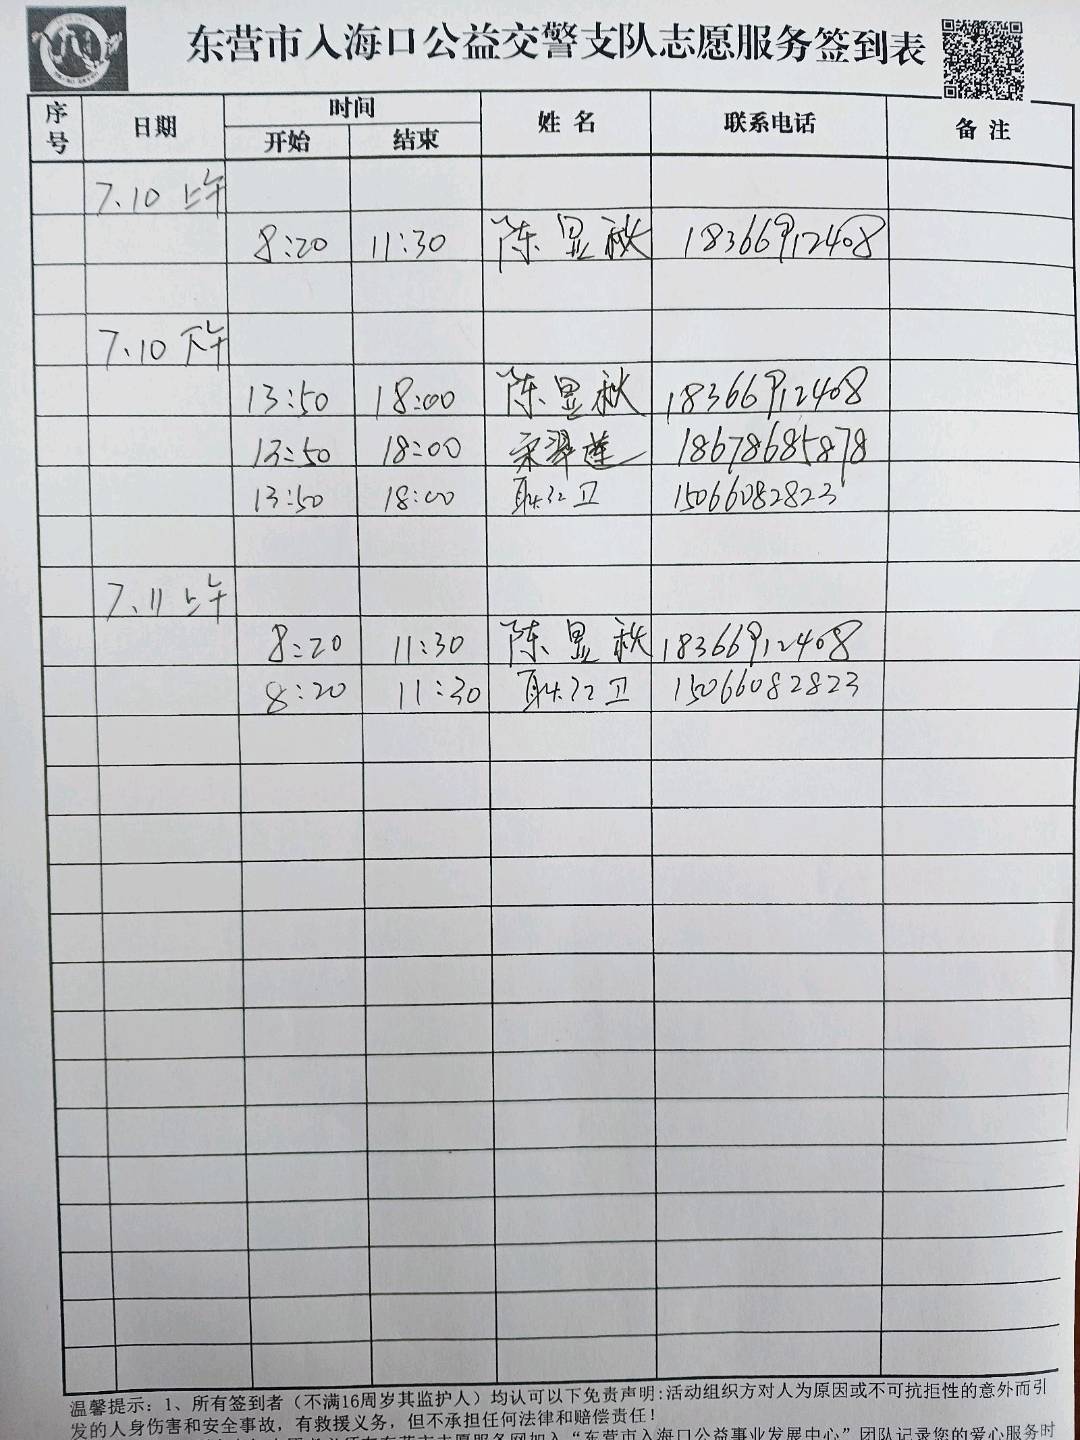 东营市入海口公益交警支队志愿服务签到表
序号 日期 时间 姓名 联系电话 备注
开始 结束
7.10 上午
8:20 11:30 陈显秋 18366912408
7.10 下午
13:50 18:00 陈显秋 18366912408
13:50 18:00 宋翠莲 18678685878
13:50 18:00 耿红卫 15066082823
7.11 上午
8:20 11:30 陈显秋 18366912408
8:20 11:30 耿红卫 15066082823
温馨提示：1、所有签到者（不满16周岁其监护人）均认可以下免责声明:活动组织方对人为原因或不可抗拒性的意外而引
发的人身伤害和安全事故，有救援义务，但不承担任何法律和赔偿责任！
东营市志愿服务网加入“东营市入海口公益事业发展中心”团队记录您的爱心服务时